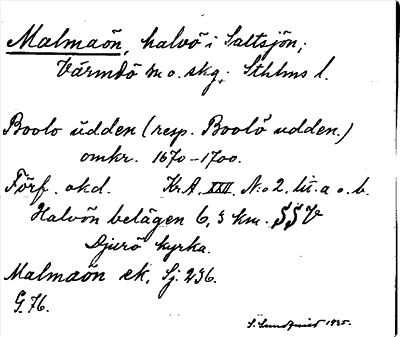 Malmaön, halvö i Saltsjön;
Värmdö sn o. skg; Sthlms l.
Boolo udden (resp. Boolö udden.)
omkr. 1670–1700.
Förf. okd. Kr.A. XXII. No 2. lit. a o. b.
Halvön belägen 6,3 km. SSV
Djurö kyrka.
Malmaön ek, Sj. 236.
G. 76.
S. Sundqvist 1935.